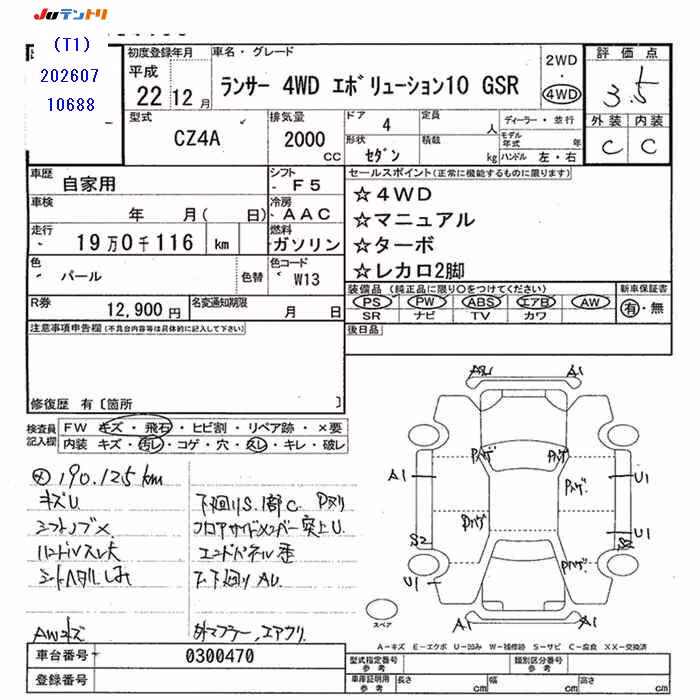 JUテントリ
(T1)
202607
10688
初度登録年月
平成
22 12月
車名・グレード
ランサー 4WD エボリューション10 GSR
2WD
・
4WD
評価点
3.5
外装 内装
C C
型式
CZ4A
排気量
2000
CC
ドア 4
形状 セダン
定員 人
積載 kg
ディーラー・並行
モデル年式 年
ハンドル 左・右
車歴
自家用
シフト
F5
車検
年 月( 日)
冷房
AAC
走行
19万0千116 km
燃料
ガソリン
色
パール
色替
色コード
W13
R券
12,900円
名変通知期限
月 日
セールスポイント(正常に機能するものに限ります)
☆4WD
☆マニュアル
☆ターボ
☆レカロ2脚
装備品(純正品に限り○をつけてください)
PS PW ABS エアB AW
SR ナビ TV カワ
新車保証書
有・無
後日品
注意事項申告欄(不具合内容等は具体的に記入して下さい)
修復歴 有〔箇所 〕
検査員記入欄
FW キズ・飛石・ヒビ割・リペア跡・×要
内装 キズ・汚レ・コゲ・穴・スレ・キレ・破レ
190.125km
キズU
シフトノブ×
ハンドルスレ大
シートヘタリしみ
AWキズ
下廻りS.1部C Pヌリ
フロアサイドメンバー突上U.
エンドパネル歪
下下廻りAU.
外マフラー、エアクリ
A1
A1
U1
U1
U1
S2
S2
Pハゲ
Pハゲ
Pハゲ
Pハゲ
Pハゲ
A1
A1
スペア
A-キズ E-エクボ U-凹み W-補修跡 S-サビ C-腐食 XX-交換済
車台番号
0300470
登録番号
型式指定番号 参考
類別区分番号 参考
車庫証明用 参考
長さ cm
幅 cm
高さ cm